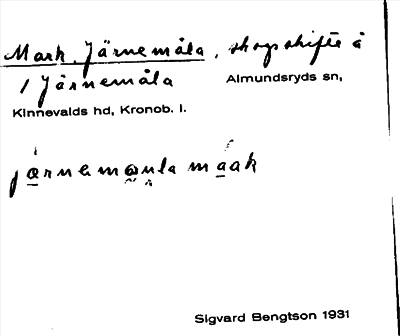 Mark, Järnemåla, skogsskifte å
1 Järnemåla Almundsryds sn,
Kinnevalds hd, Kronob. l.
jɑrnemɷnla mɑak
Sigvard Bengtson 1931